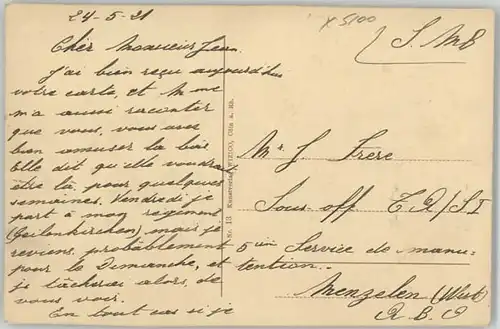 24-5-21
x 5100
S. M
Cher Monsieur Jean.
J'ai bien reçu aujourd'hui
votre carte, et M me
m'a aussi raconter
que vous, vous
bien amuser là bas
Elle dit qu'elle voudrai
être là, pour quelques
semaines. Vendredi je
part à mon régiment
(Geilenkirchen) mais je
reviens, probablement
pour le Dimanche, et
je tâcherai alors, de
vous voir.
En tout cas si je
Nr. 13 Kunstverlag WEDCO, Cöln a. Rh.
Mr. J. Frere
Sous off
5 ième Service de manu-
tention.
Menzelen (West)
A. B. O